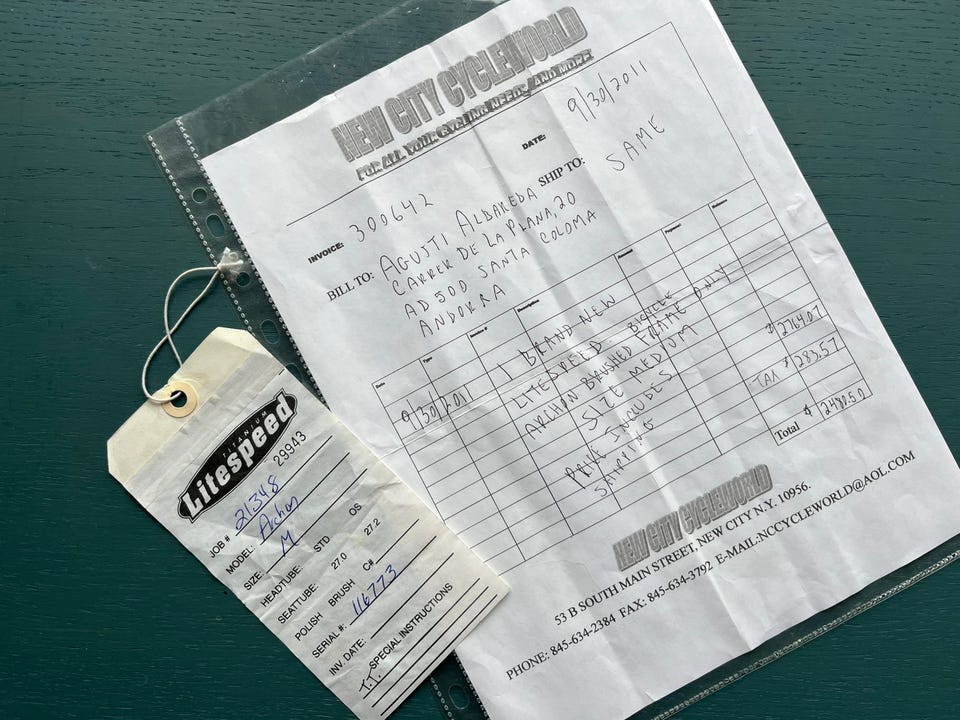 NEW CITY CYCLEWORLD
FOR ALL YOUR CYCLING NEEDS AND MORE
DATE: 9/30/2011
INVOICE: 300642
SHIP TO: SAME
BILL TO: AGUSTI ALBAREDA
CARRER DE LA PLANA, 20
AD500 SANTA COLOMA
ANDORRA
Date Type Description Amount Payment Balance
9/30/2011 1 BRAND NEW
LITESPEED BICYCLE
ARCHON BRUSHED FRAME ONLY
SIZE MEDIUM
PRICE INCLUDES
SHIPPING
TAX $ 283.57
Total $ 2480.50
NEW CITY CYCLEWORLD
53 B SOUTH MAIN STREET, NEW CITY N.Y. 10956.
PHONE: 845-634-2384 FAX: 845-634-3792 E-MAIL:NCCYCLEWORLD@AOL.COM
TITANIUM
Litespeed
29943
JOB # 21348
MODEL: Archon
SIZE: M
HEADTUBE: STD OS
SEATTUBE: 27.0 27.2
POLISH BRUSH C#
SERIAL #: 116773
INV. DATE:
SPECIAL INSTRUCTIONS
T.T.